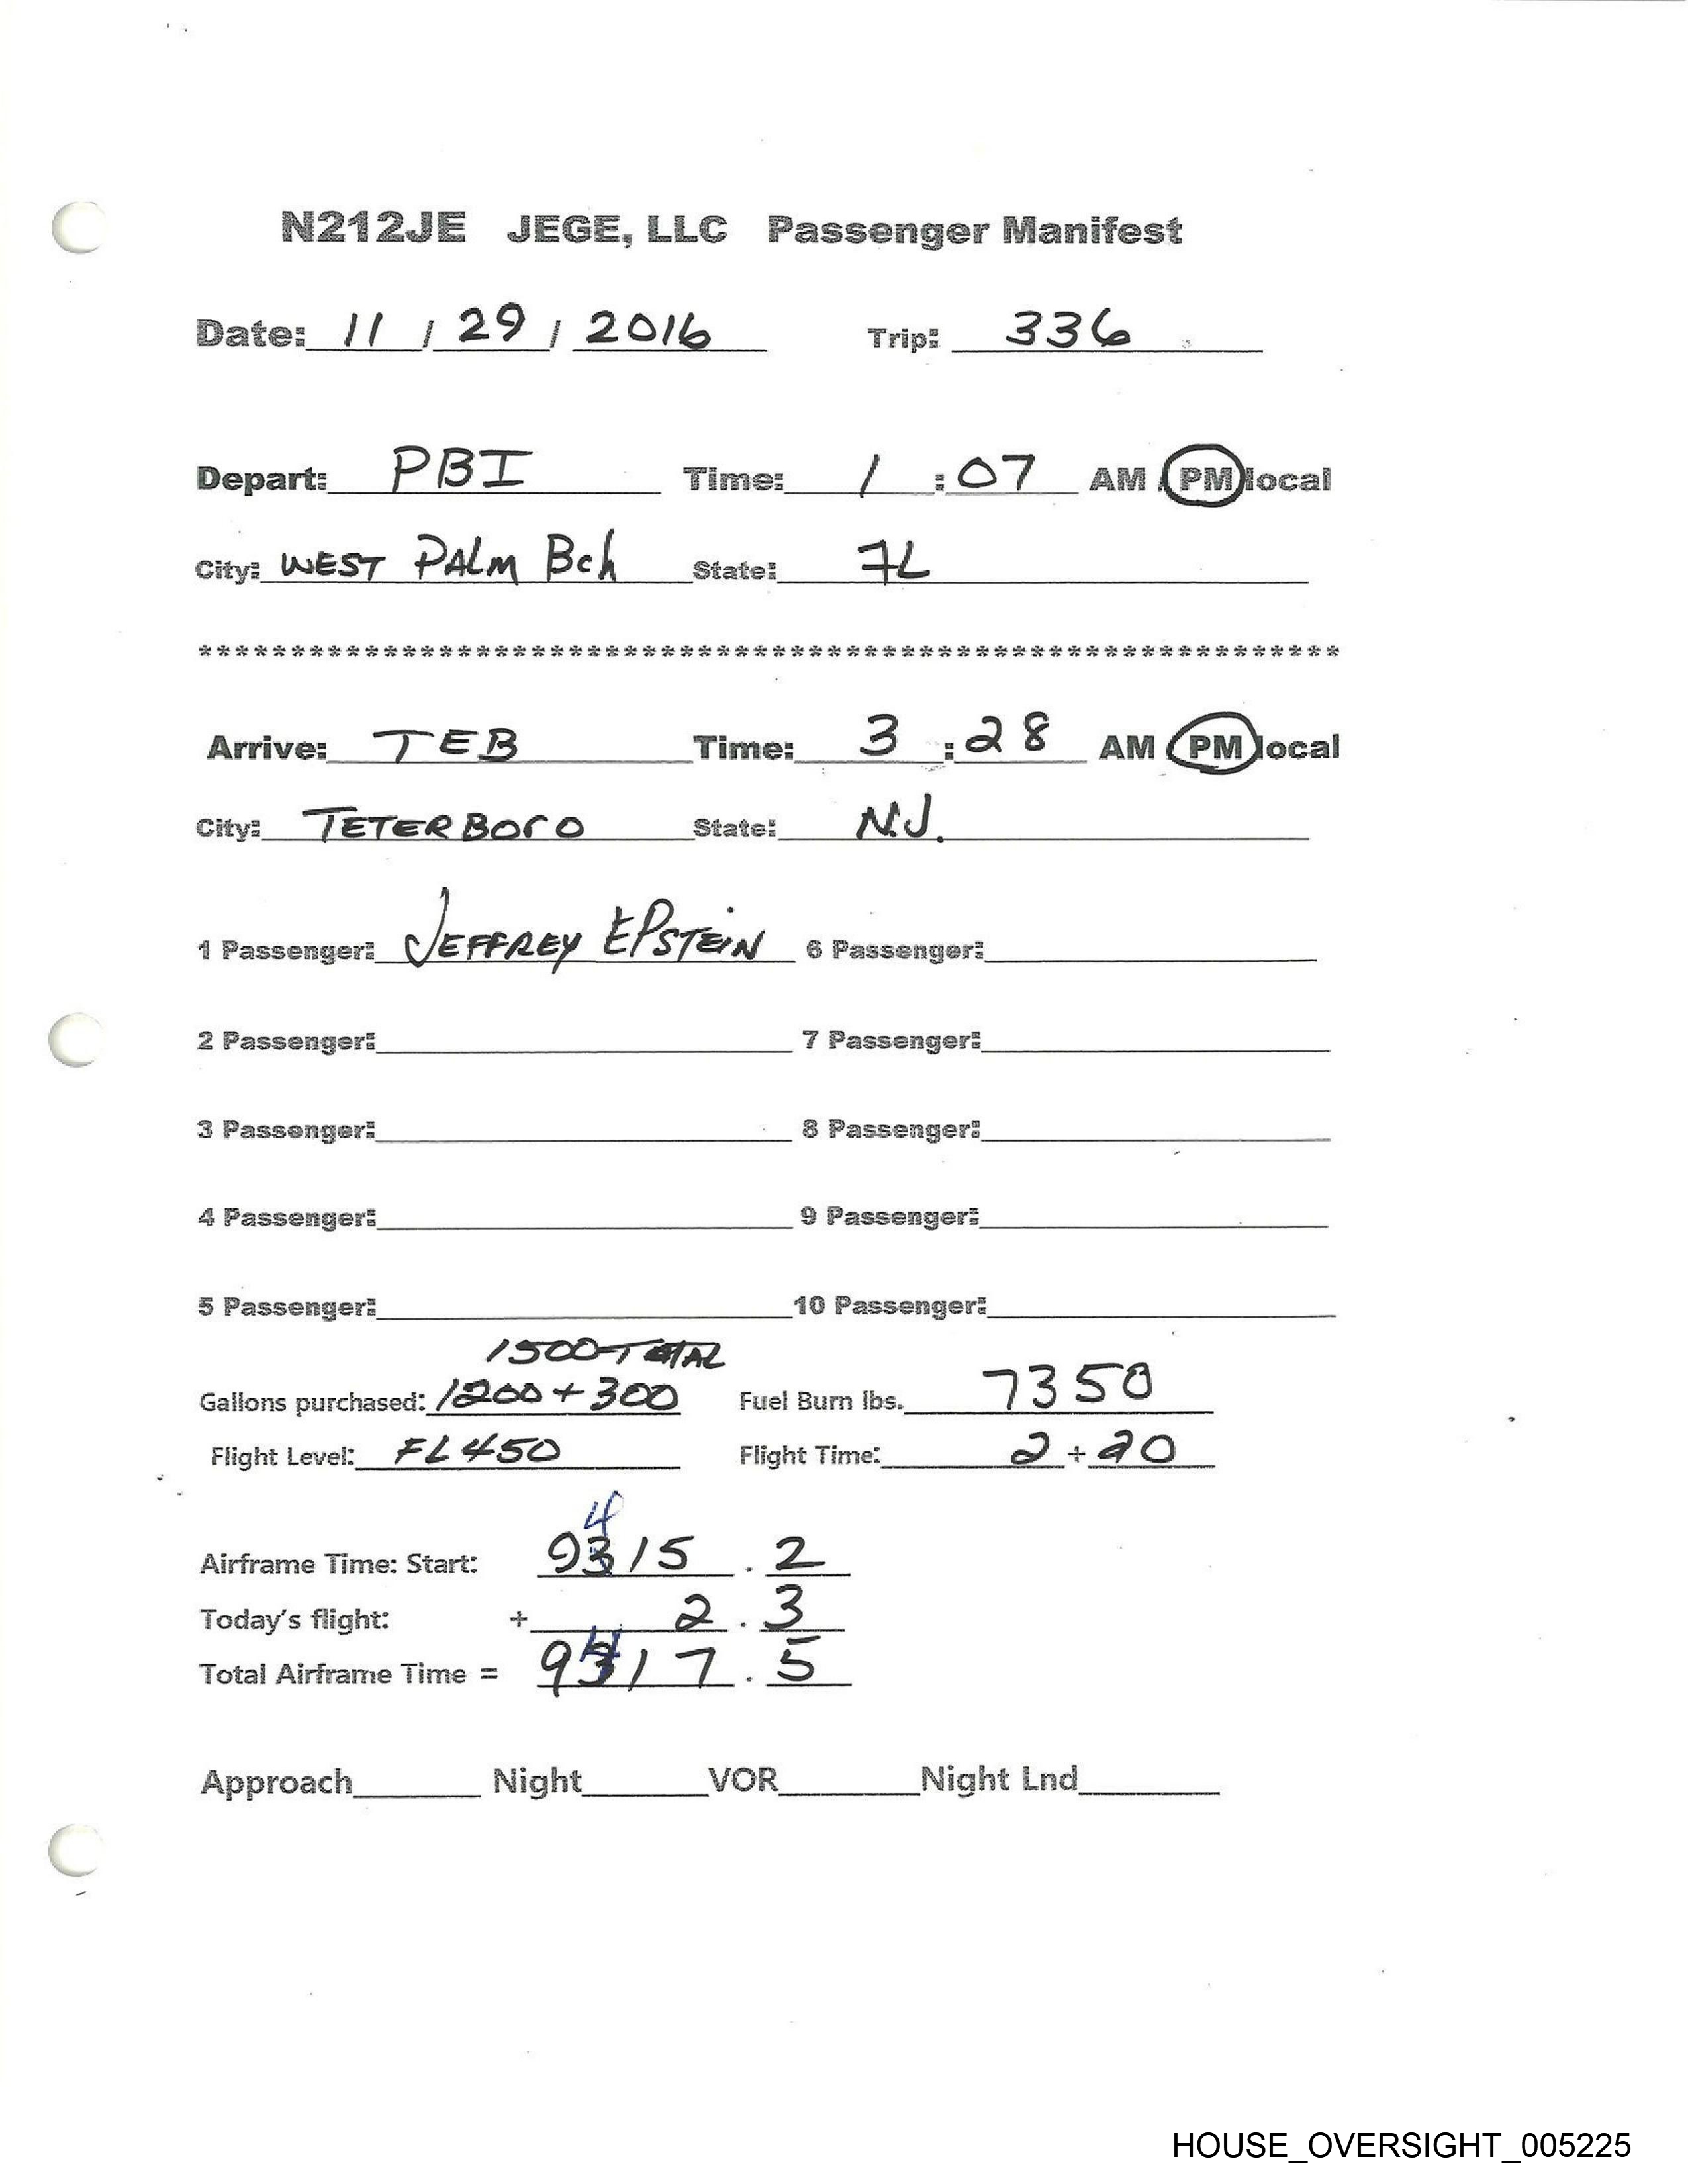 N212JE JEGE, LLC Passenger Manifest
Date: 11 / 29 / 2016 Trip: 336
Depart: PBI Time: 1 : 07 AM / PM local
City: WEST PALM Bch State: FL
**************************************************************
Arrive: TEB Time: 3 : 28 AM / PM local
City: TETERBOrO State: N.J.
1 Passenger: JEFFREY EPSTEiN 6 Passenger:
2 Passenger: 7 Passenger:
3 Passenger: 8 Passenger:
4 Passenger: 9 Passenger:
5 Passenger: 10 Passenger:
1500 TOTAL
Gallons purchased: 1200 + 300 Fuel Burn lbs. 7350
Flight Level: FL 450 Flight Time: 2 + 20
4
Airframe Time: Start: 9315 . 2
Today's flight: + 2 . 3
Total Airframe Time = 9417 . 5
Approach Night VOR Night Lnd
HOUSE_OVERSIGHT_005225